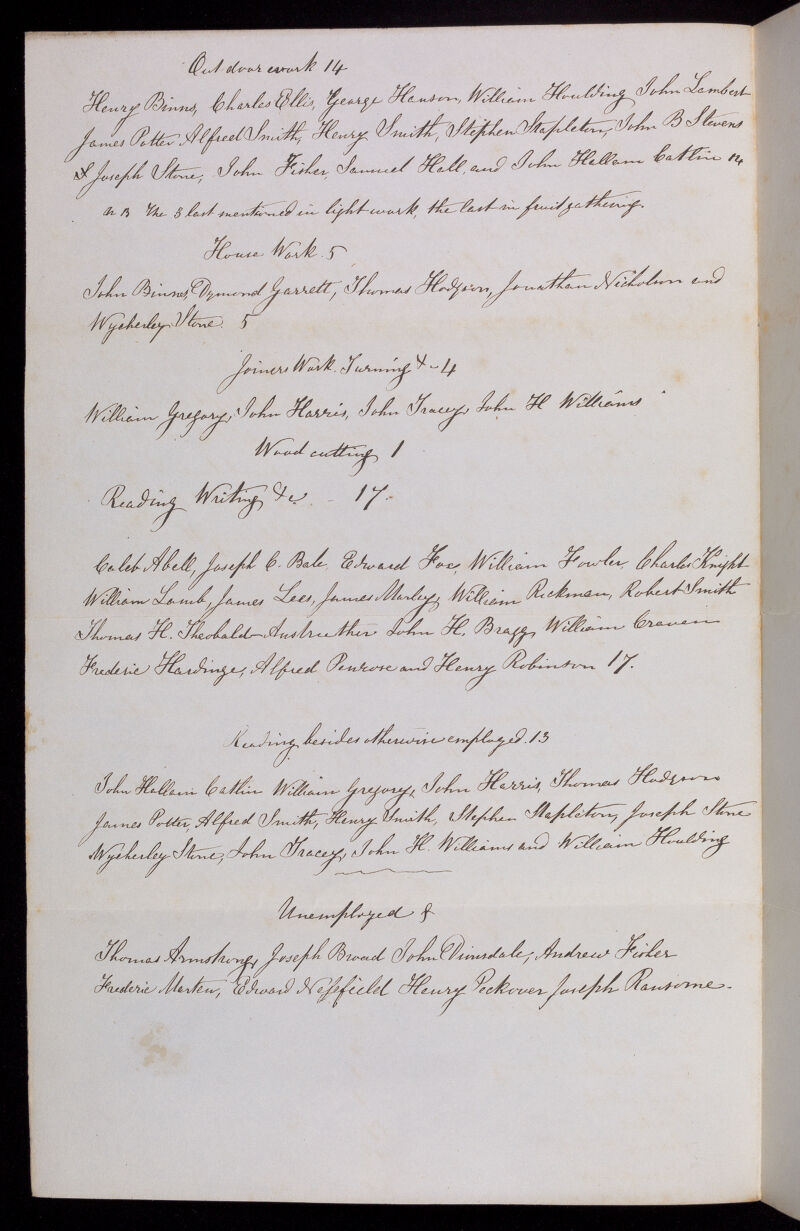 Out door work 14
Henry Binns, Charles Ellis, George Hanson, William Houlding John Lambert
James Potter Alfred Smith, Henry Smith, Stephen Stapleton, John B Stevens
& Joseph Stone, John Fisher, Samuel Hall, and John Hallam Catlin 14
The 3 last mentioned in light work, the last in fruit gathering.
House Work. 5
John Binns, Dymond Garrett, Thomas Hodgson, Jonathan Nicholson and
Wycherley Stone 5
Joiners Work. Turning &c 4
William Gregory, John Harris, John Tracey, John H Williams
Wood cutting 1
Reading Writing &c - 17.
Caleb Abell, Joseph C. Bale, Edward Fox, William Fowler, Charles Knight
William Lamb, James Lees, James Marley, William Rickman, Robert Smith
Thomas H. Theobald Anstruther John H. Bragg, William Craven
Frederic Hardinge, Alfred Penrose and Henry Robinson 17.
Reading besides otherwise employed. 13
John Hallam Catlin William Gregory, John Harris, Thomas Hodgson
James Potter, Alfred Smith, Henry Smith, Stephen Stapleton, Joseph Stone
Wycherley Stone, John Tracey, John H. Williams and William Houlding
Unemployed 8
Thomas Armstrong, Joseph Broad John Dimsdale, Andrew Fisher
Frederic Marten, Edward Nessfield Henry Peckover Joseph Ransome.